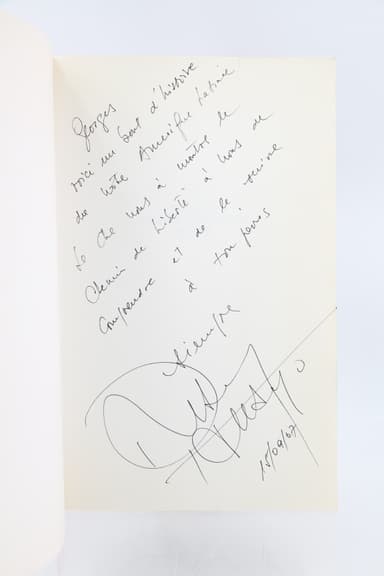 Georges
voici un bout d'histoire
de notre Amérique Latine
Le Che nous a montré le
Chemin de Liberté à nous de
comprendre et de le suivre
à ton
siempre
15/09/07